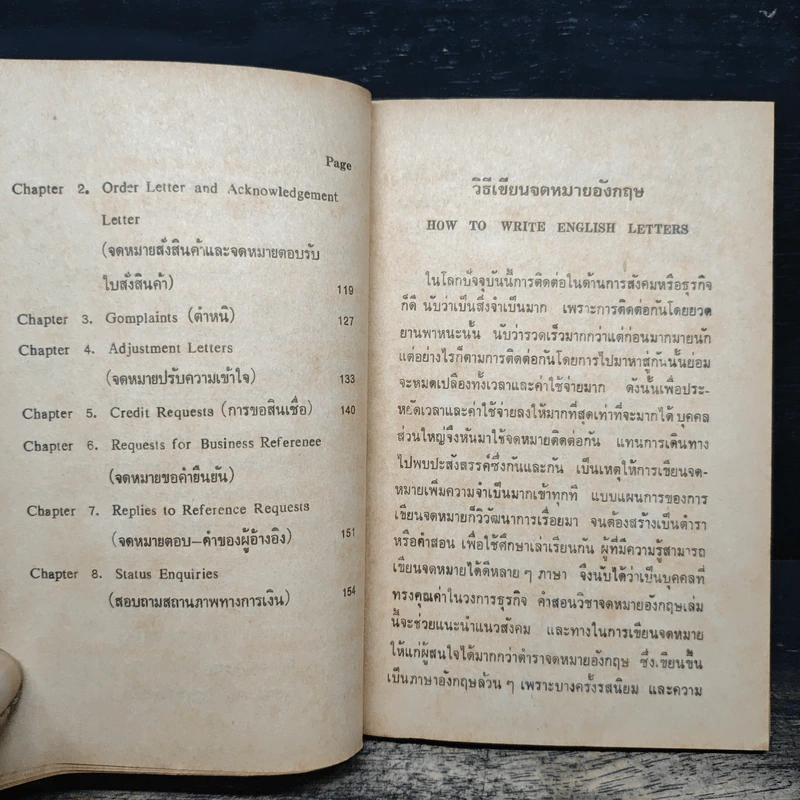 Page
Chapter 2. Order Letter and Acknowledgement
Letter
(จดหมายสั่งสินค้าและจดหมายตอบรับ
ใบสั่งสินค้า) 119
Chapter 3. Gomplaints (ตำหนิ) 127
Chapter 4. Adjustment Letters
(จดหมายปรับความเข้าใจ) 133
Chapter 5. Credit Requests (การขอสินเชื่อ) 140
Chapter 6. Requests for Business Reference
(จดหมายขอคำยืนยัน)
Chapter 7. Replies to Reference Requests
(จดหมายตอบ—คำของผู้อ้างอิง) 151
Chapter 8. Status Enquiries
(สอบถามสถานภาพทางการเงิน) 154
วิธีเขียนจดหมายอังกฤษ
HOW TO WRITE ENGLISH LETTERS
ในโลกปัจจุบันนี้การติดต่อในด้านการสังคมหรือธุรกิจ
ก็ดี นับว่าเป็นสิ่งจำเป็นมาก เพราะการติดต่อกันโดยยวด
ยานพาหนะนั้น นับว่ารวดเร็วมากกว่าแต่ก่อนมากมายนัก
แต่อย่างไรก็ตามการติดต่อกันโดยการไปมาหาสู่กันนั้นย่อม
จะหมดเปลืองทั้งเวลาและค่าใช้จ่ายมาก ดังนั้นเพื่อประ-
หยัดเวลาและค่าใช้จ่ายลงให้มากที่สุดเท่าที่จะมากได้ บุคคล
ส่วนใหญ่จึงหันมาใช้จดหมายติดต่อกัน แทนการเดินทาง
ไปพบปะสังสรรค์ซึ่งกันและกัน เป็นเหตุให้การเขียนจด-
หมายเพิ่มความจำเป็นมากเข้าทุกที แบบแผนการของการ
เขียนจดหมายก็วิวัฒนาการเรื่อยมา จนต้องสร้างเป็นตำรา
หรือคำสอน เพื่อใช้ศึกษาเล่าเรียนกัน ผู้ที่มีความรู้สามารถ
เขียนจดหมายได้ดีหลาย ๆ ภาษา จึงนับได้ว่าเป็นบุคคลที่
ทรงคุณค่าในวงการธุรกิจ คำสอนวิชาจดหมายอังกฤษเล่ม
นี้จะช่วยแนะนำแนวสังคม และทางในการเขียนจดหมาย
ให้แก่ผู้สนใจได้มากกว่าตำราจดหมายอังกฤษ ซึ่งเขียนขึ้น
เป็นภาษาอังกฤษล้วน ๆ เพราะบางครั้งรสนิยม และความ